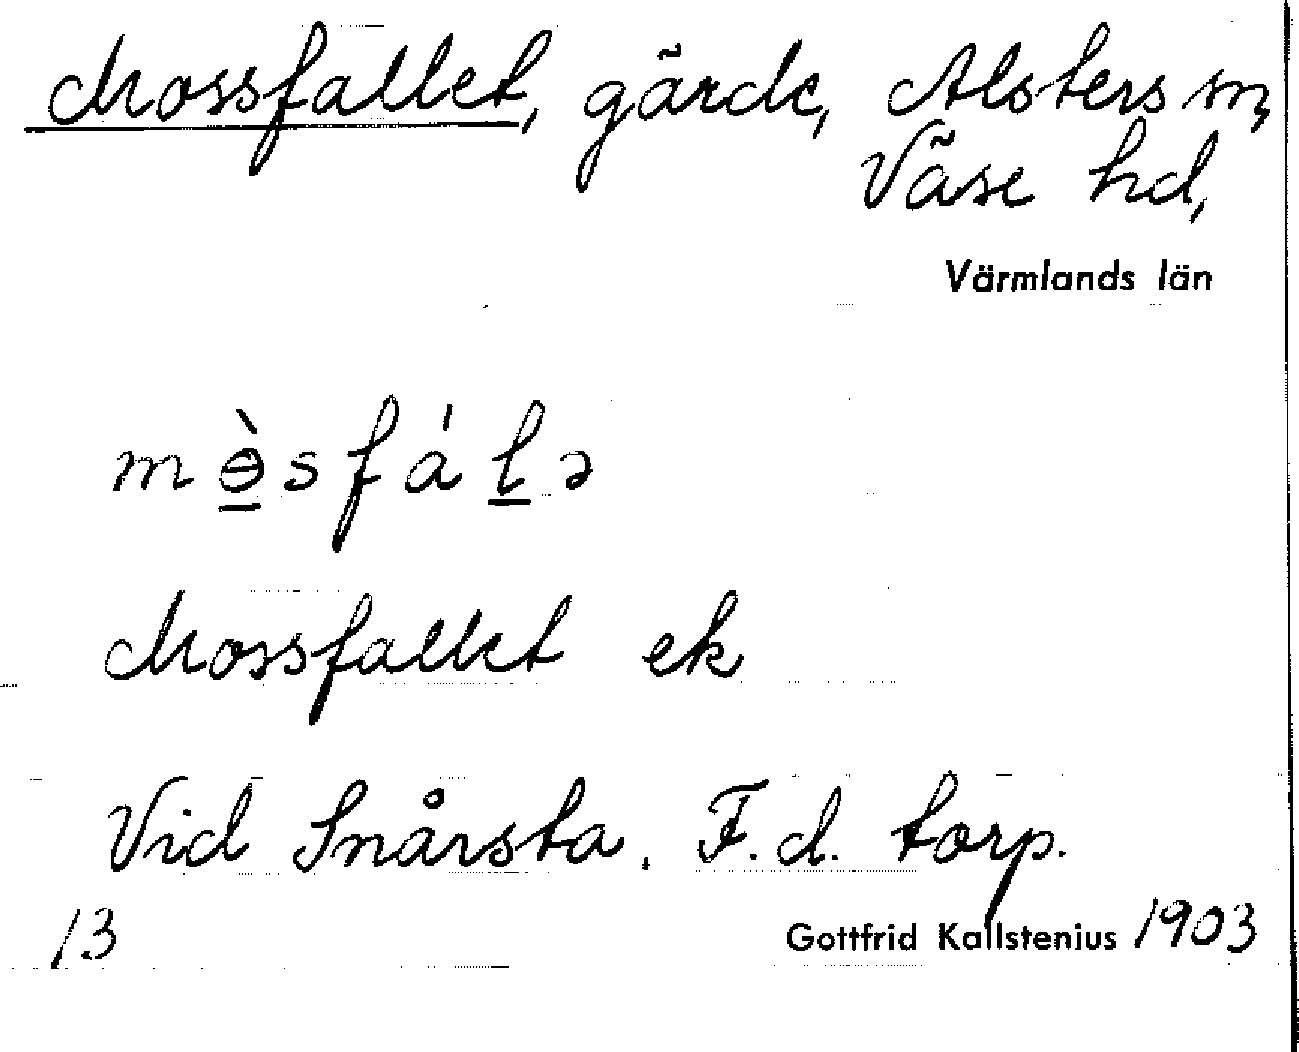 Mossfallet, gärde, Alsters sn,
Väse hd,
Värmlands län
mɵ̀sfálə
Mossfallet ek
Vid Snårsta. F.d. torp.
13
Gottfrid Kallstenius 1903